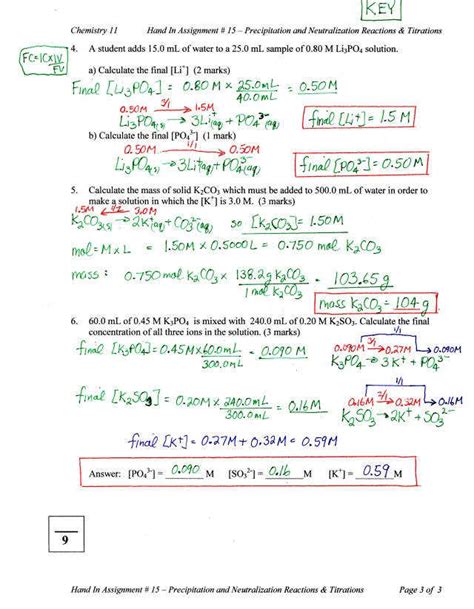 KEY
Chemistry 11 Hand In Assignment # 15 – Precipitation and Neutralization Reactions & Titrations
FC=ICxIV
FV
4. A student adds 15.0 mL of water to a 25.0 mL sample of 0.80 M Li₃PO₄ solution.
a) Calculate the final [Li⁺] (2 marks)
Final [Li₃PO₄] = 0.80 M x 25.0mL = 0.50M
40.0mL
0.50M 3/1 → 1.5M
Li₃PO₄(s) → 3Li⁺(aq) + PO₄³⁻(aq) final [Li⁺] = 1.5 M
b) Calculate the final [PO₄³⁻] (1 mark)
0.50M 1/1 0.50M
Li₃PO₄(s) → 3Li⁺(aq) + PO₄³⁻(aq) final [PO₄³⁻] = 0.50M
5. Calculate the mass of solid K₂CO₃ which must be added to 500.0 mL of water in order to
make a solution in which the [K⁺] is 3.0 M. (3 marks)
1.5M 1/2 3.0M
K₂CO₃(s) → 2K⁺(aq) + CO₃²⁻(aq) so [K₂CO₃] = 1.50M
mol = M x L = 1.50M x 0.5000L = 0.750 mol K₂CO₃
mass: 0.750 mol K₂CO₃ x 138.2g K₂CO₃ = 103.65g
1 mol K₂CO₃
mass K₂CO₃ = 104 g
6. 60.0 mL of 0.45 M K₃PO₄ is mixed with 240.0 mL of 0.20 M K₂SO₃. Calculate the final
concentration of all three ions in the solution. (3 marks)
1/1
final [K₃PO₄] = 0.45M x 60.0mL = 0.090 M 0.090M 3/1 → 0.27M → 0.090M
300.0mL K₃PO₄ → 3K⁺ + PO₄³⁻
1/1
final [K₂SO₃] = 0.20M x 240.0mL = 0.16M 0.16M 2/1 → 0.32M → 0.16M
300.0mL K₂SO₃ → 2K⁺ + SO₃²⁻
final [K⁺] = 0.27M + 0.32M = 0.59M
Answer: [PO₄³⁻] = 0.090 M [SO₃²⁻] = 0.16 M [K⁺] = 0.59 M
9
Hand In Assignment # 15 – Precipitation and Neutralization Reactions & Titrations Page 3 of 3